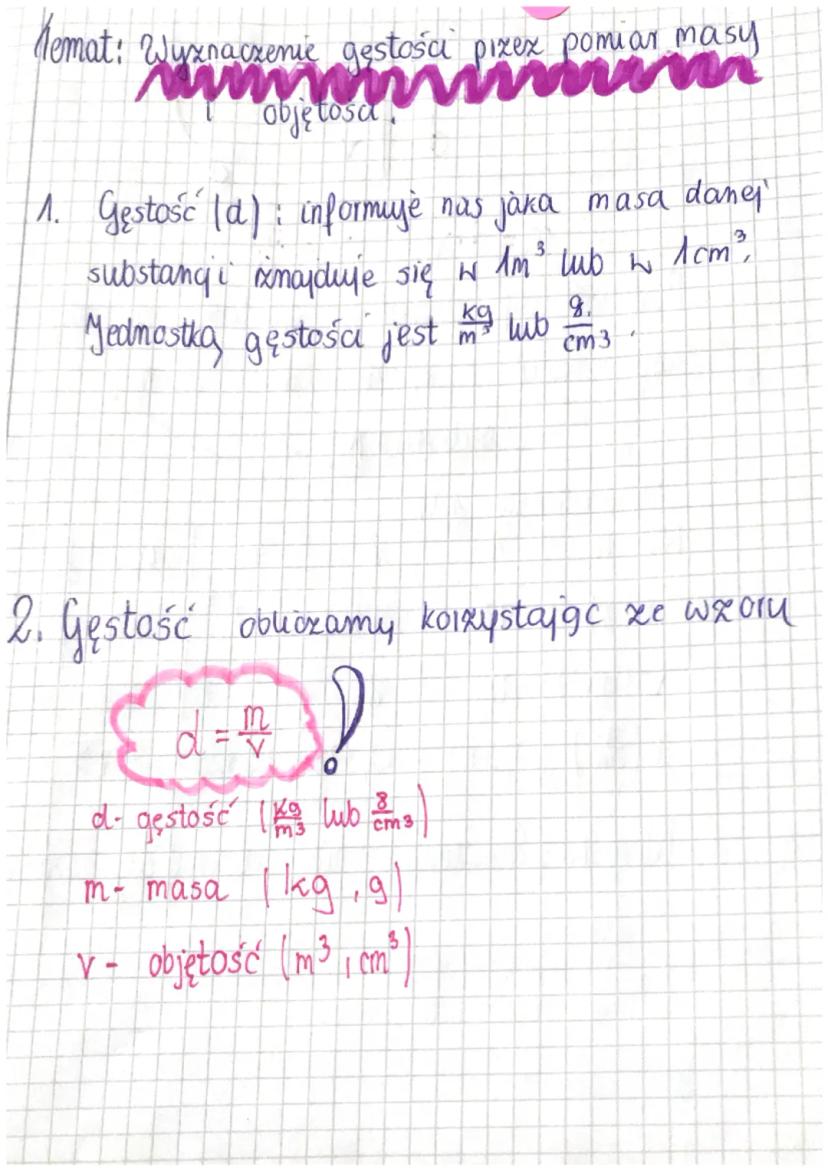 Temat: Wyznaczenie gęstości przez pomiar masy
i objętości.
1. Gęstość (d): informuje nas jaka masa danej
substancji znajduje się w 1m³ lub w 1cm³.
Jednostką gęstości jest kg/m³ lub g/cm³.
2. Gęstość obliczamy korzystając ze wzoru
d = m/v !
d- gęstość (kg/m³ lub g/cm³)
m- masa (kg, g)
v- objętość (m³, cm³)